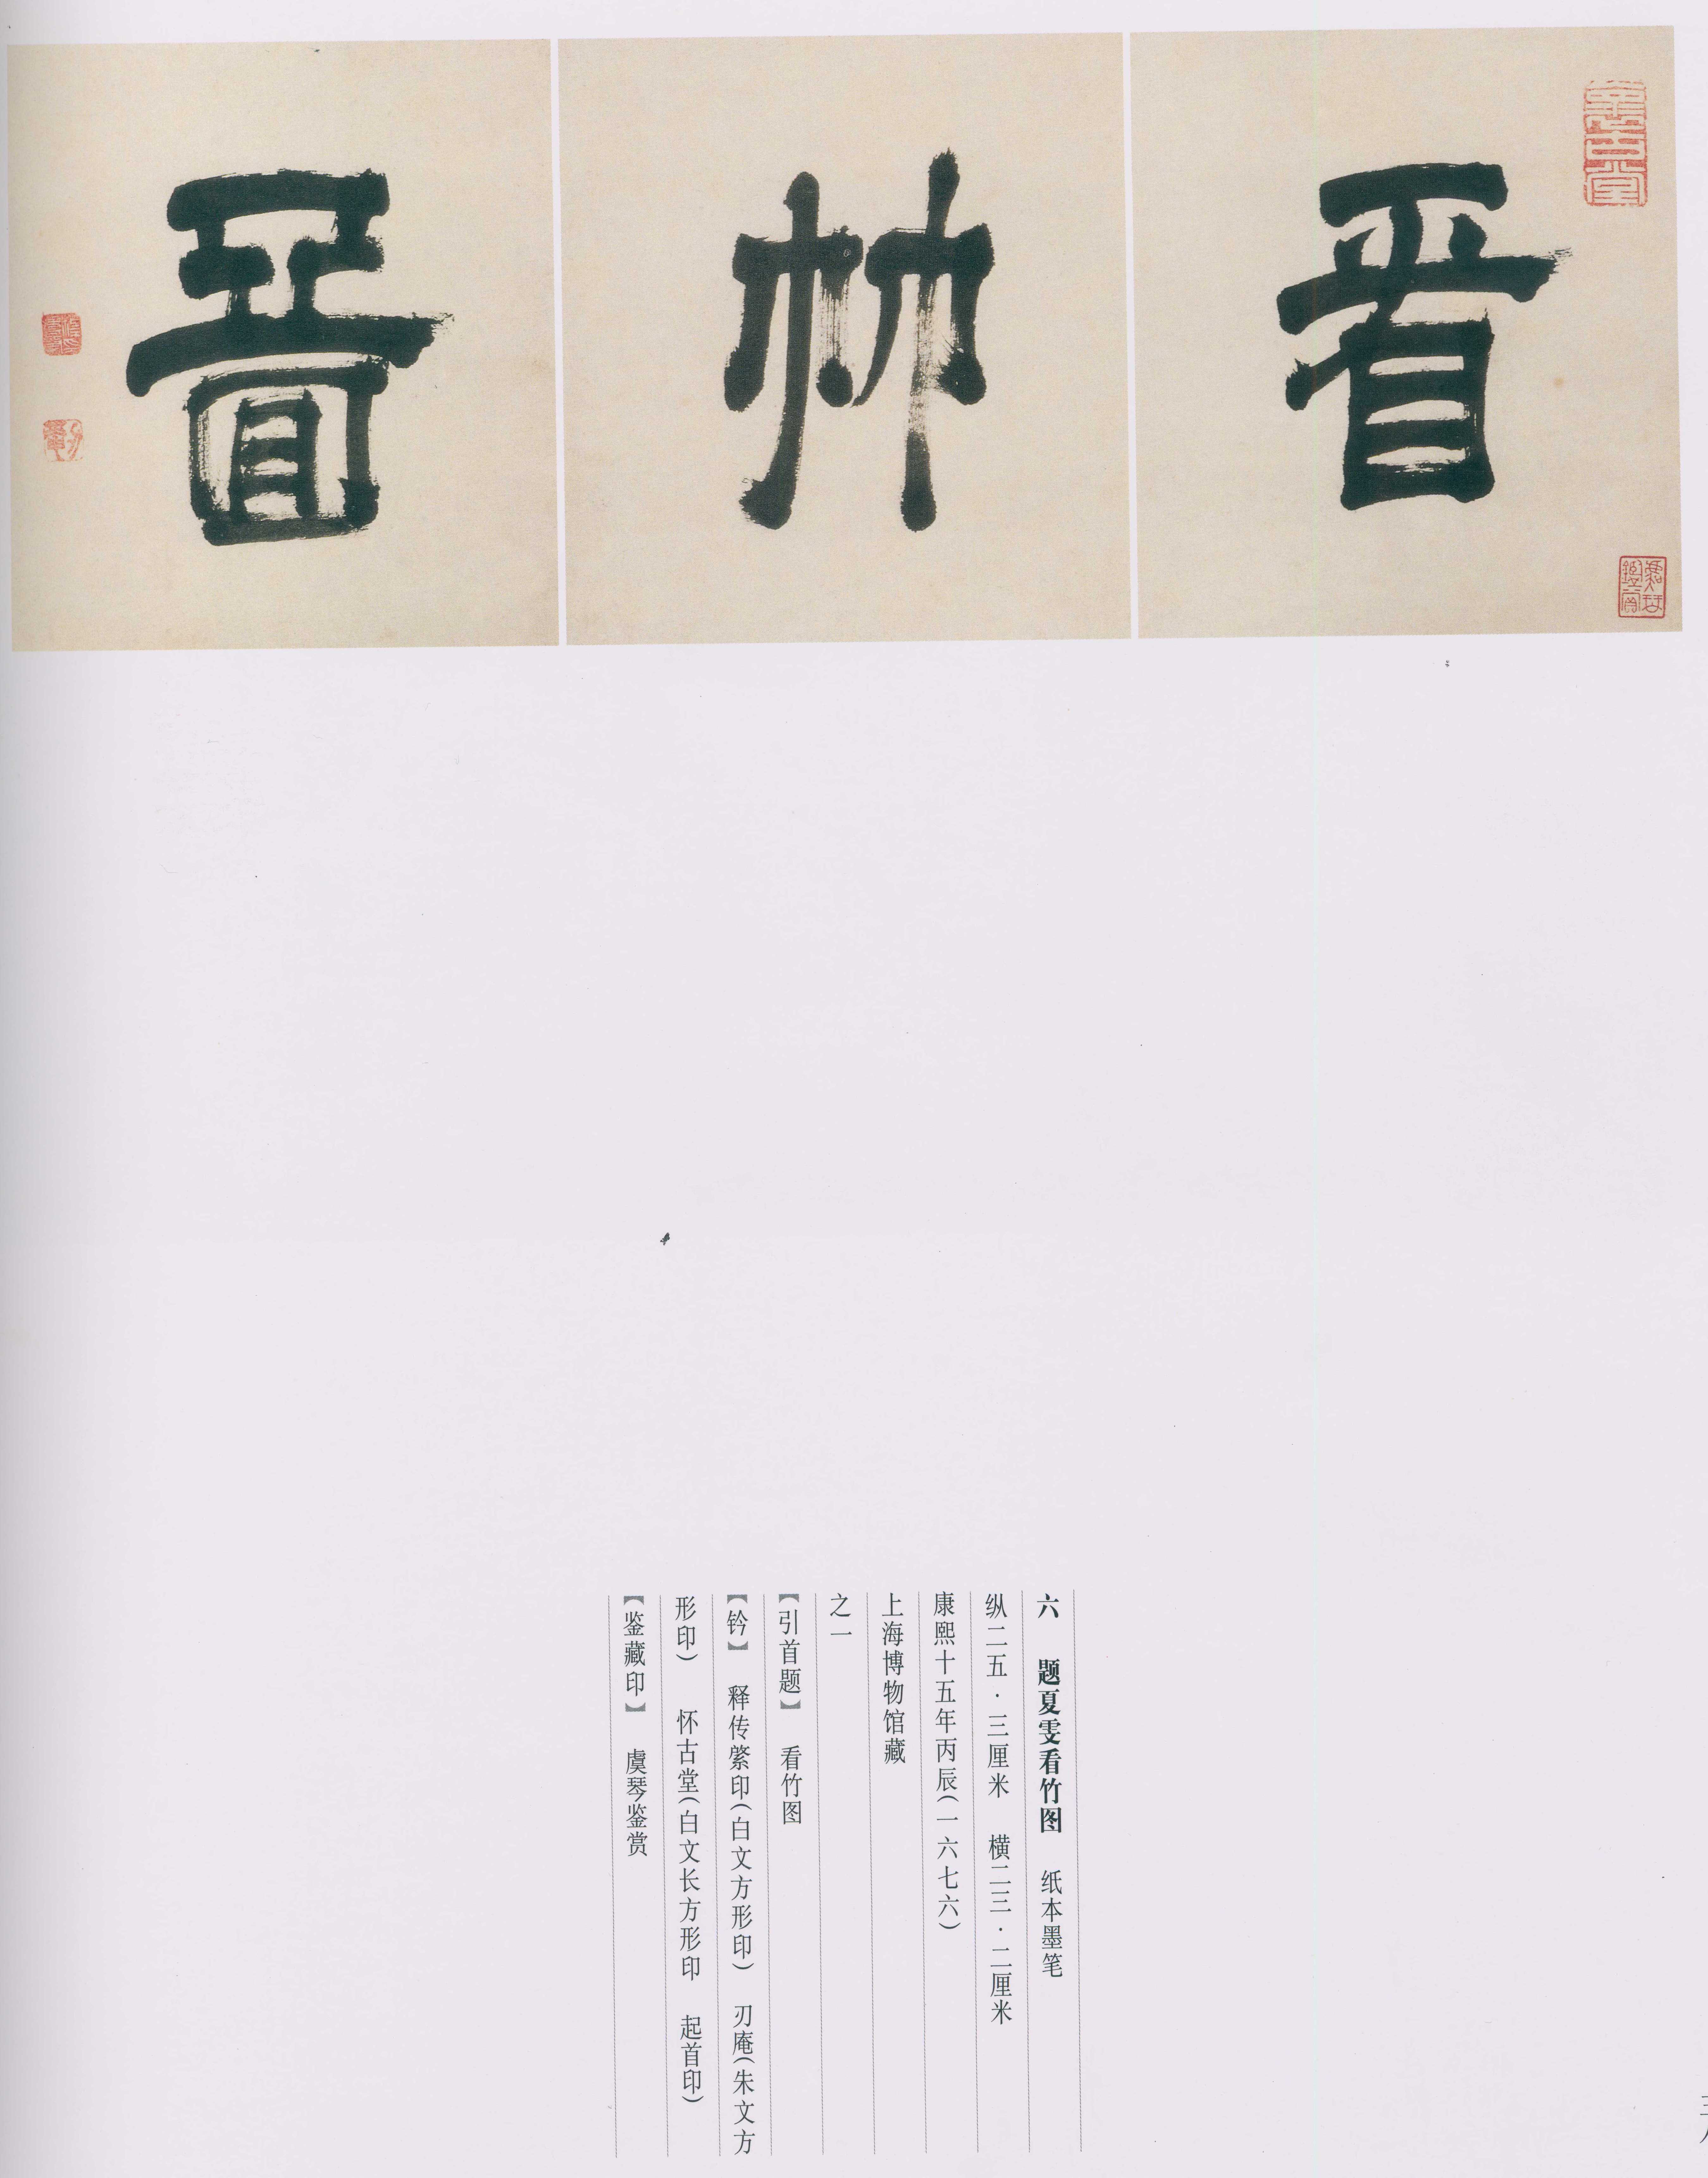 看竹圖
懷古堂
虞琴鑑賞
六 题夏雯看竹图 纸本墨笔
纵二五·三厘米 横二三·二厘米
康熙十五年丙辰（一六七六）
上海博物馆藏
之一
【引首题】 看竹图
【钤】 释传綮印（白文方形印） 刃庵（朱文方
形印） 怀古堂（白文长方形印 起首印）
【鉴藏印】 虞琴鉴赏